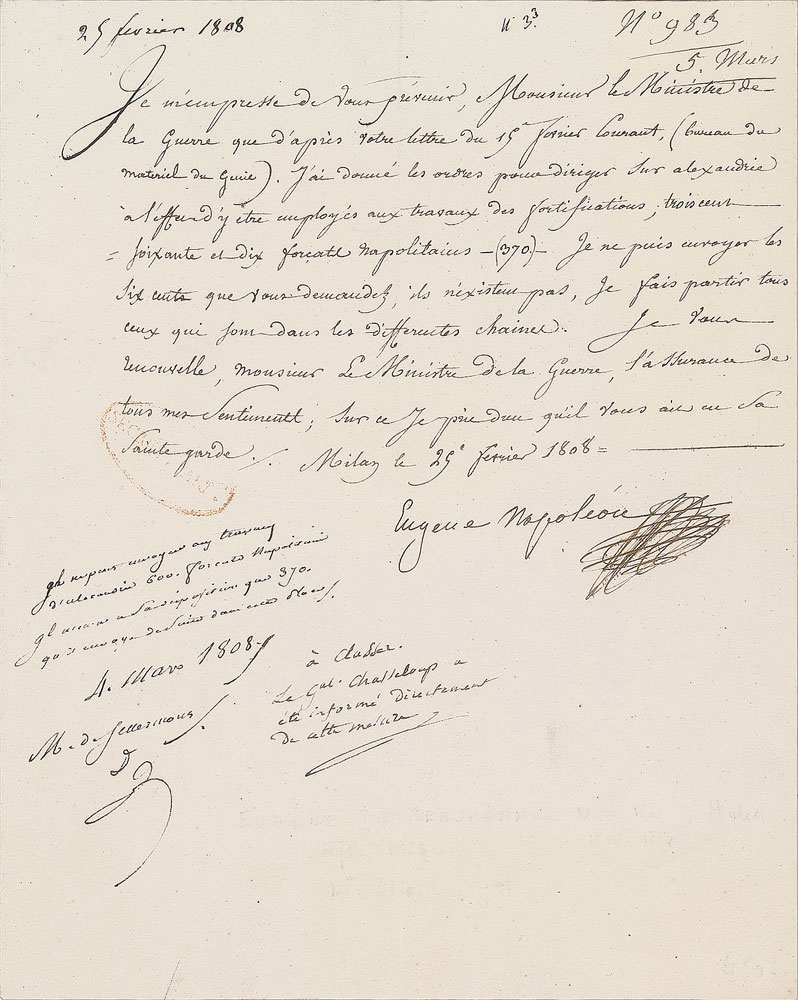 25 fevrier 1808
N° 33.
N° 983
5. Mars
Je m'empresse de vous prévenir, Monsieur le Ministre de
la Guerre que d'après votre lettre du 15 fevrier Courant, (bureau du
materiel du Genie). J'ai donné les ordres pour diriger sur alexandrie
à l'effet d'y être employés aux travaux des fortifications, trois cent
= soixante et dix forcats Napolitains -(370)- Je ne puis envoyer les
six cents que vous demandez, ils n'existent pas, Je fais partir tous
ceux qui sont dans les differentes chaines. Je vous
renouvelle, monsieur Le Ministre de la Guerre, l'assurance de
tous mes Sentiments; Sur ce Je prie dieu qu'il vous ait en Sa
Sainte garde ./. Milan le 25 fevrier 1808 =
Eugene Napoléon
aux travaux
d'alexandrie 600. forcats Napolitains
a Sa disposition que 370.
4. Mars 1808
à Classer.
Le Gal. Chasseloup a
été informé directement
de cette mesure
M. D